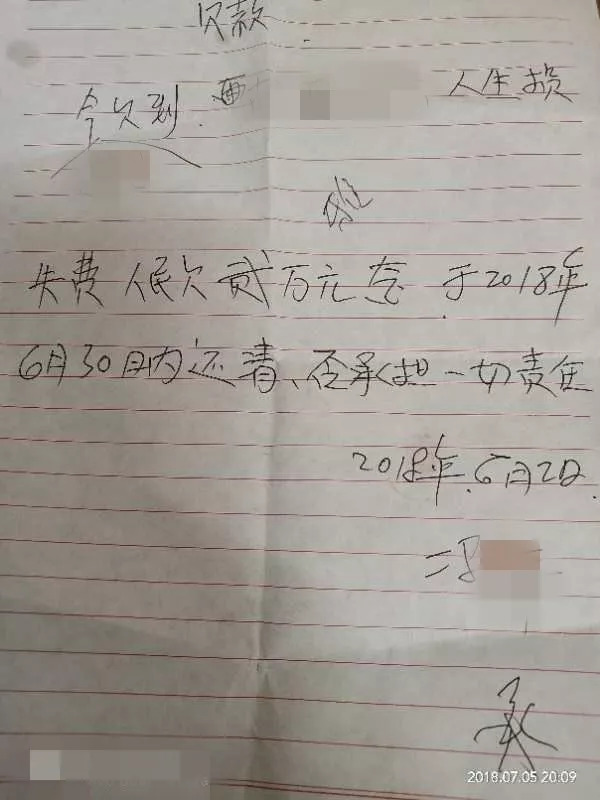 欠款
今欠到 人生损
失费 人民欠贰万元 于2018年
6月30日内还清、否承担一切责任
2018年6月2日
冯
2018.07.05 20:09